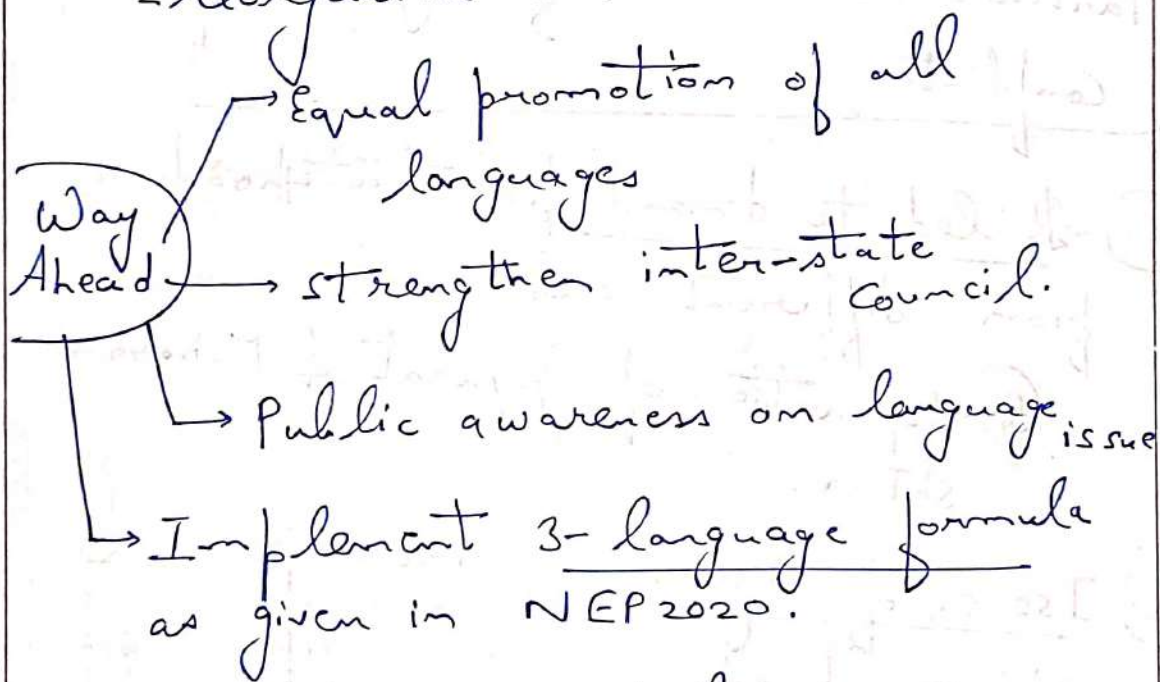 Equal promotion of all
languages
Way
Ahead
strengthen inter-state
Council.
Public awareness on language issue
Implement 3-language formula
as given in NEP 2020.